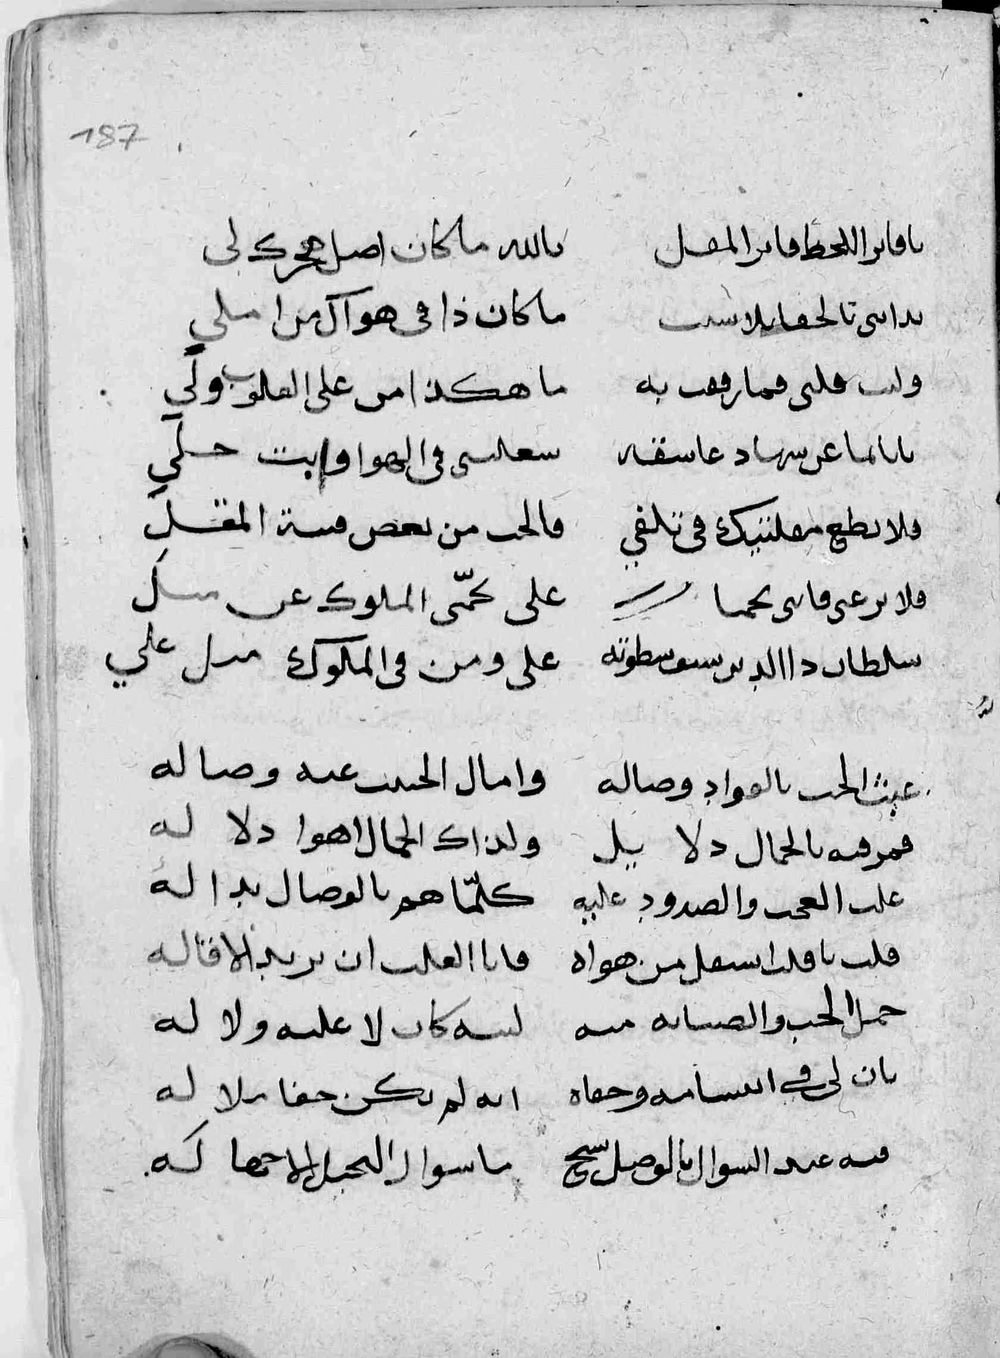 187
يا فاتر اللحظ فاتر المقل بالله ما كان اصل هجرك لي
بداتني بالجفا بلا سبب ما كان ذا في هواك من املي
وليت قلبي فما رفقت به ما هكذا من على القلوب ولي
يا نائما عن سهاد عاشقه شغلتني في الهوا وانت خلي
فلا تطع مقلتيك في تلفي فالحب من بعض فتنة المقل
فلا ترعني فانني بحما على تحمى الملوك عن
سلطان ذا الدين سيف سطوته على ومن في الملوك مثل علي
عبث الحب بالفواد وصاله وامال الحبيب عنه وصاله
قمر فيه بالجمال دلايل ولذاك الجمال اهوا دلاله
غلب العجب والصدود عليه كلما هم بالوصال بدا له
قلت يا قلب استقل من هواه فابا القلب ان يريد الاقاله
حمل الحب والصبابه منه ليته كان لا عليه ولا له
بان لي في ابتسامه وجفاه انه لم يكن جفا ملاله
فيه عند السوال بالوصل شح ما سوال البخيل الا جهاله